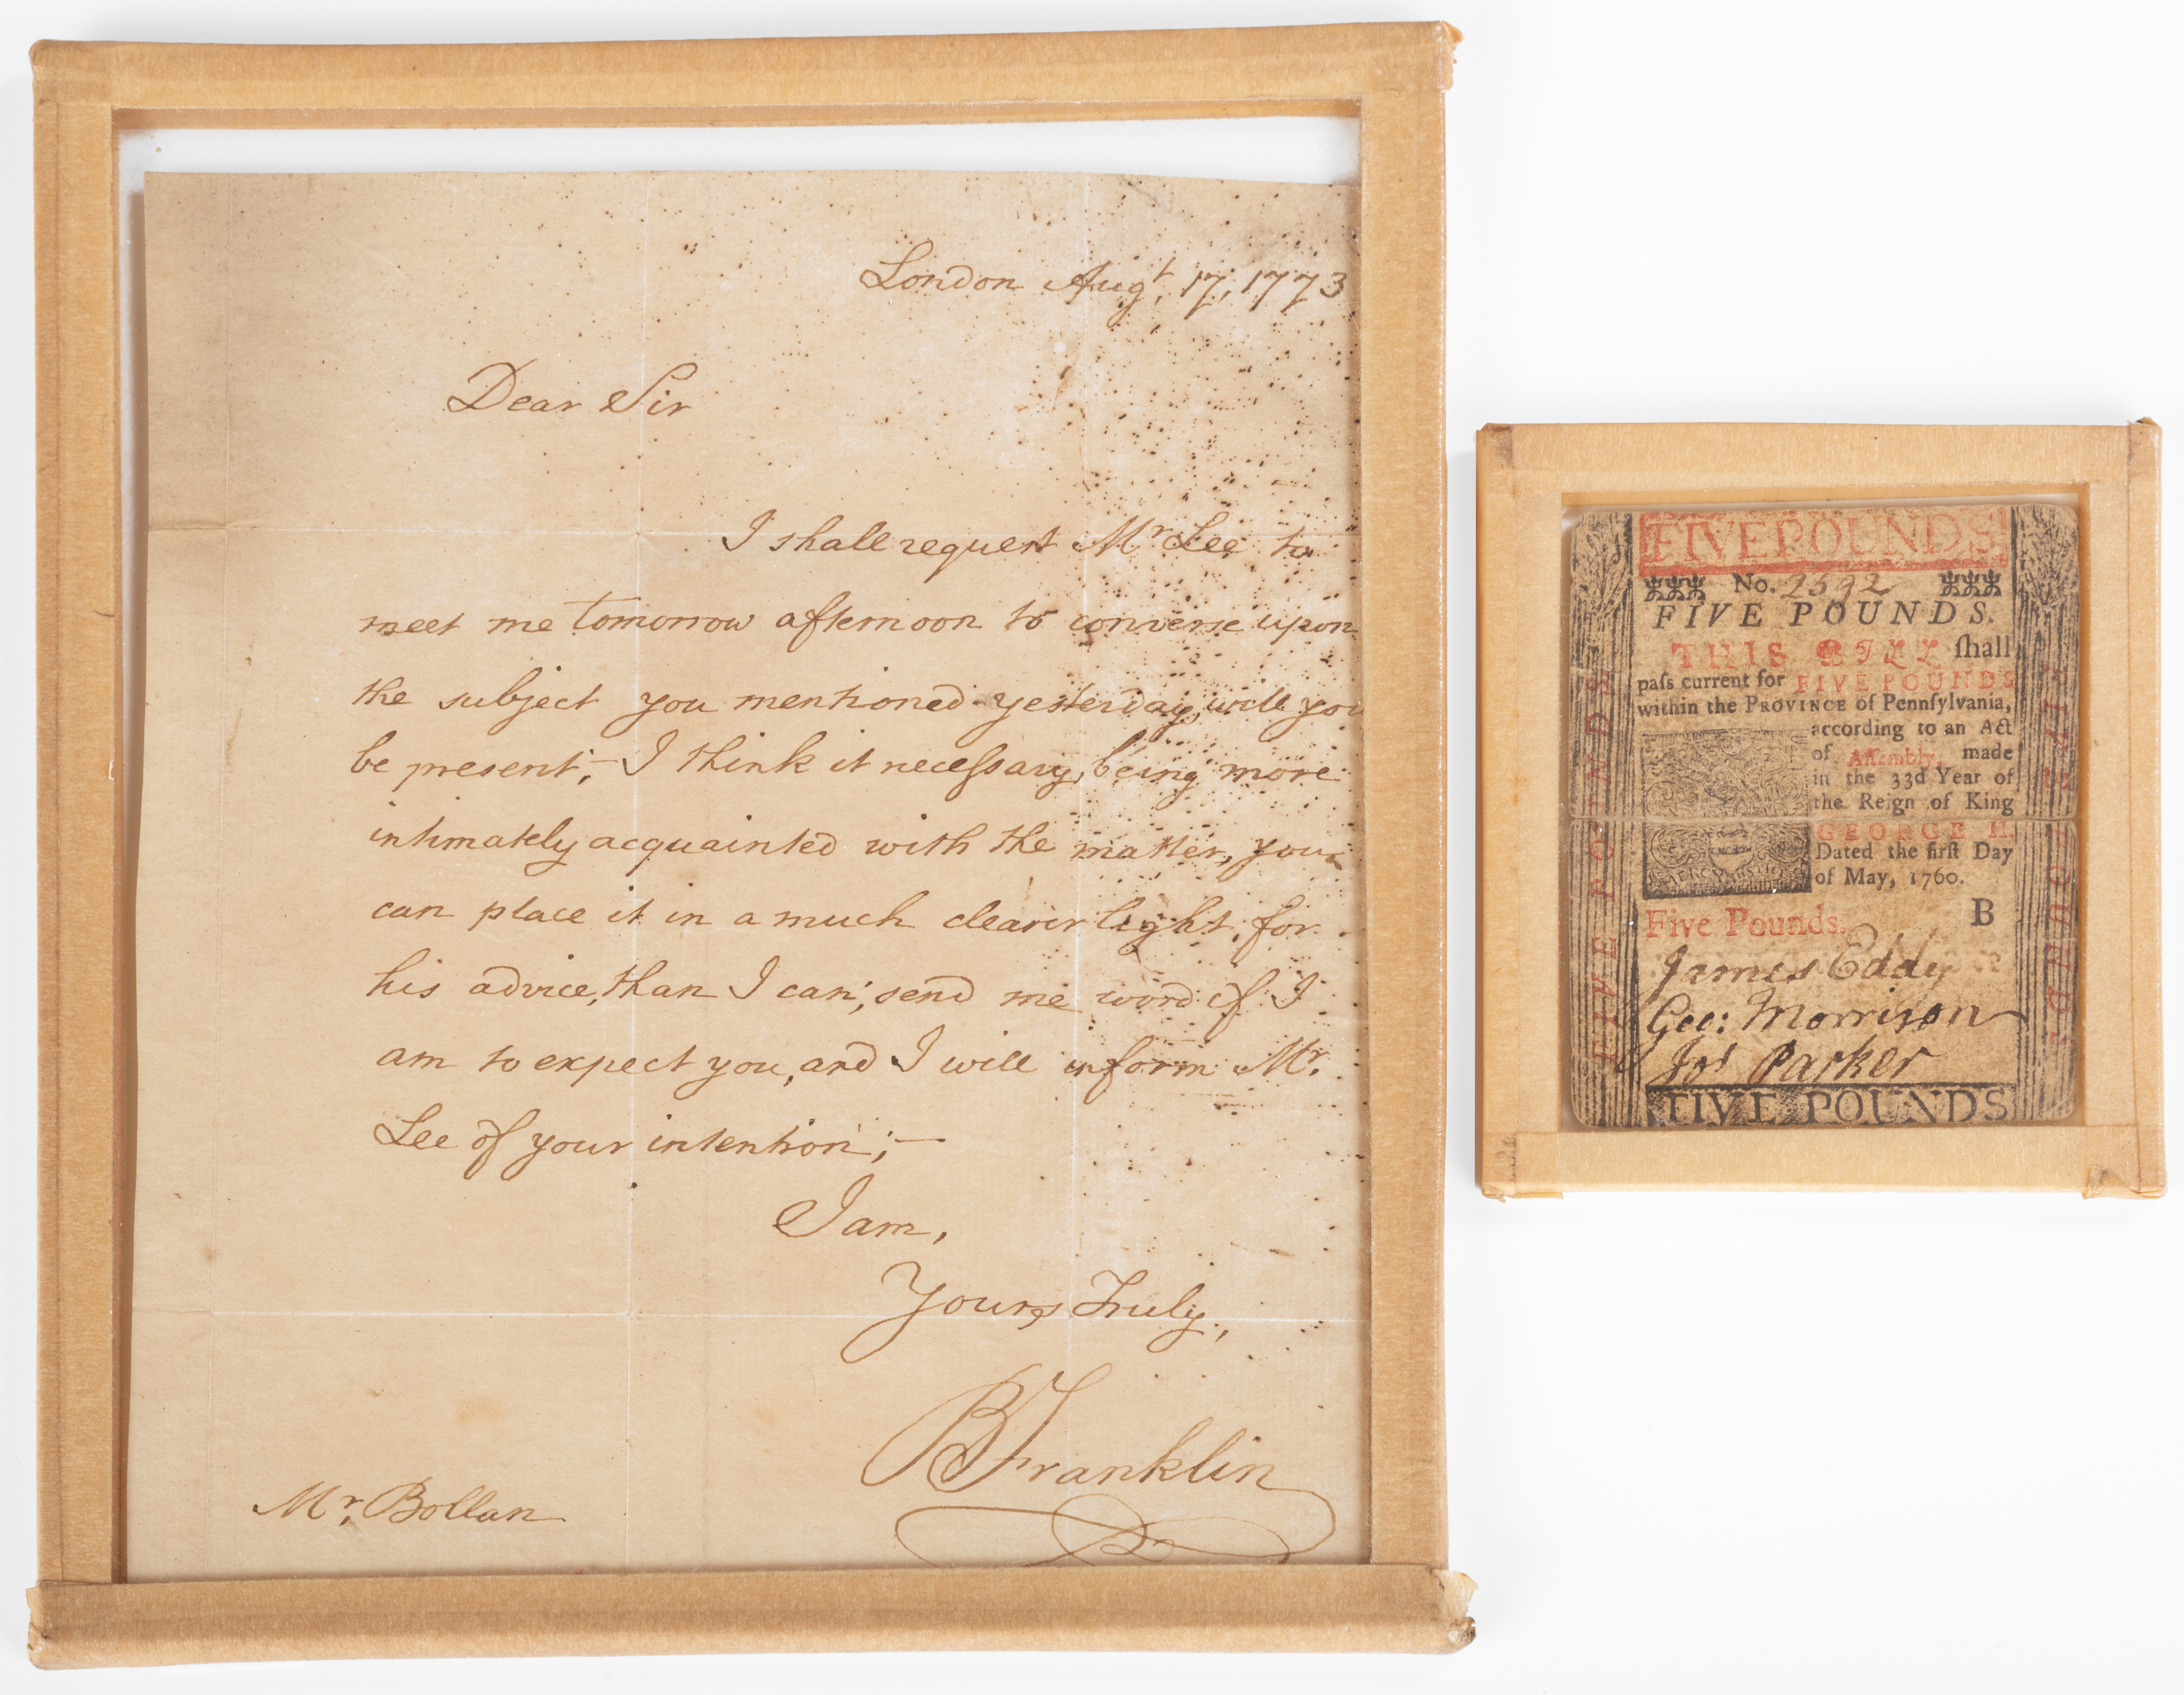 London Augt, 17, 1773
Dear Sir
I shall request Mr Lee to
meet me tomorrow afternoon to converse upon
the subject you mentioned yesterday, will you
be present;– I think it neceſsary, being more
intimately acquainted with the matter, you
can place it in a much clearer light, for
his advice, than I can; send me word if I
am to expect you, and I will inform Mr.
Lee of your intention;—
I am,
Yours Truly,
BFranklin
Mr. Bollan
FIVE POUNDS
No. 2592
FIVE POUNDS.
THIS BILL ſhall
paſs current for FIVE POUNDS
within the PROVINCE of Pennſylvania,
according to an Act
of Aſſembly, made
in the 33d Year of
the Reign of King
GEORGE II.
Dated the firſt Day
of May, 1760.
MERCY JUSTICE
Five Pounds. B
James Eddy
Geo: Morrison
Jos Parker
FIVE POUNDS
FIVE POUNDS
FIVE POUNDS